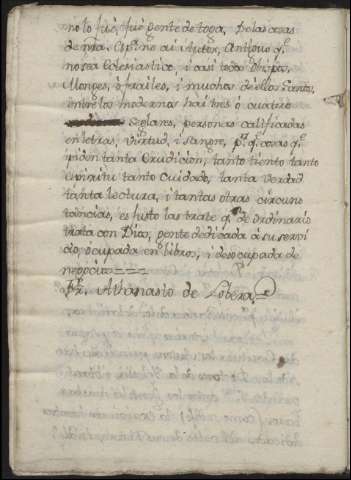 no lo fué, fué gente de toga, de las cosas
de nra. España no ai Autor Antiguo q.
no sea Eclesiastico, i casi todos Obispos,
Monges, ò frailes, i muchos de ellos Santos,
entre los modernos hai tres ò quatro
Seglares, personas calificadas
en letras, virtud, i sangre, pr. q. cosas q.
piden tanta erudicion, tanto tiento tanto
tanto cuidado, tanta verdad
tanta lectura, i tantas otras circuns
tancias, es justo las trate q.n de ordinario
trata con Dios, gente dedicada à su servi
cio, ocupada en libros, i desocupada de
negocios
Fr. Athanasio de Lobera